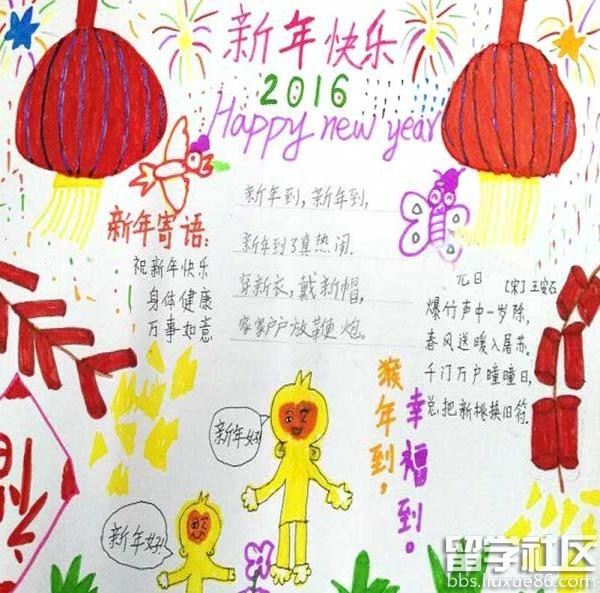 新年快乐
2016
Happy new year
新年到，新年到，
新年到了真热闹.
穿新衣，戴新帽，
家家户户放鞭炮。
新年寄语:
祝新年快乐
身体健康
万事如意
元日 [宋]王安石
爆竹声中一岁除,
春风送暖入屠苏.
千门万户曈曈日,
总把新桃换旧符.
猴年到，
幸福到。
新年好!
新年好!
福
留学社区
bbs.liuxue86.com